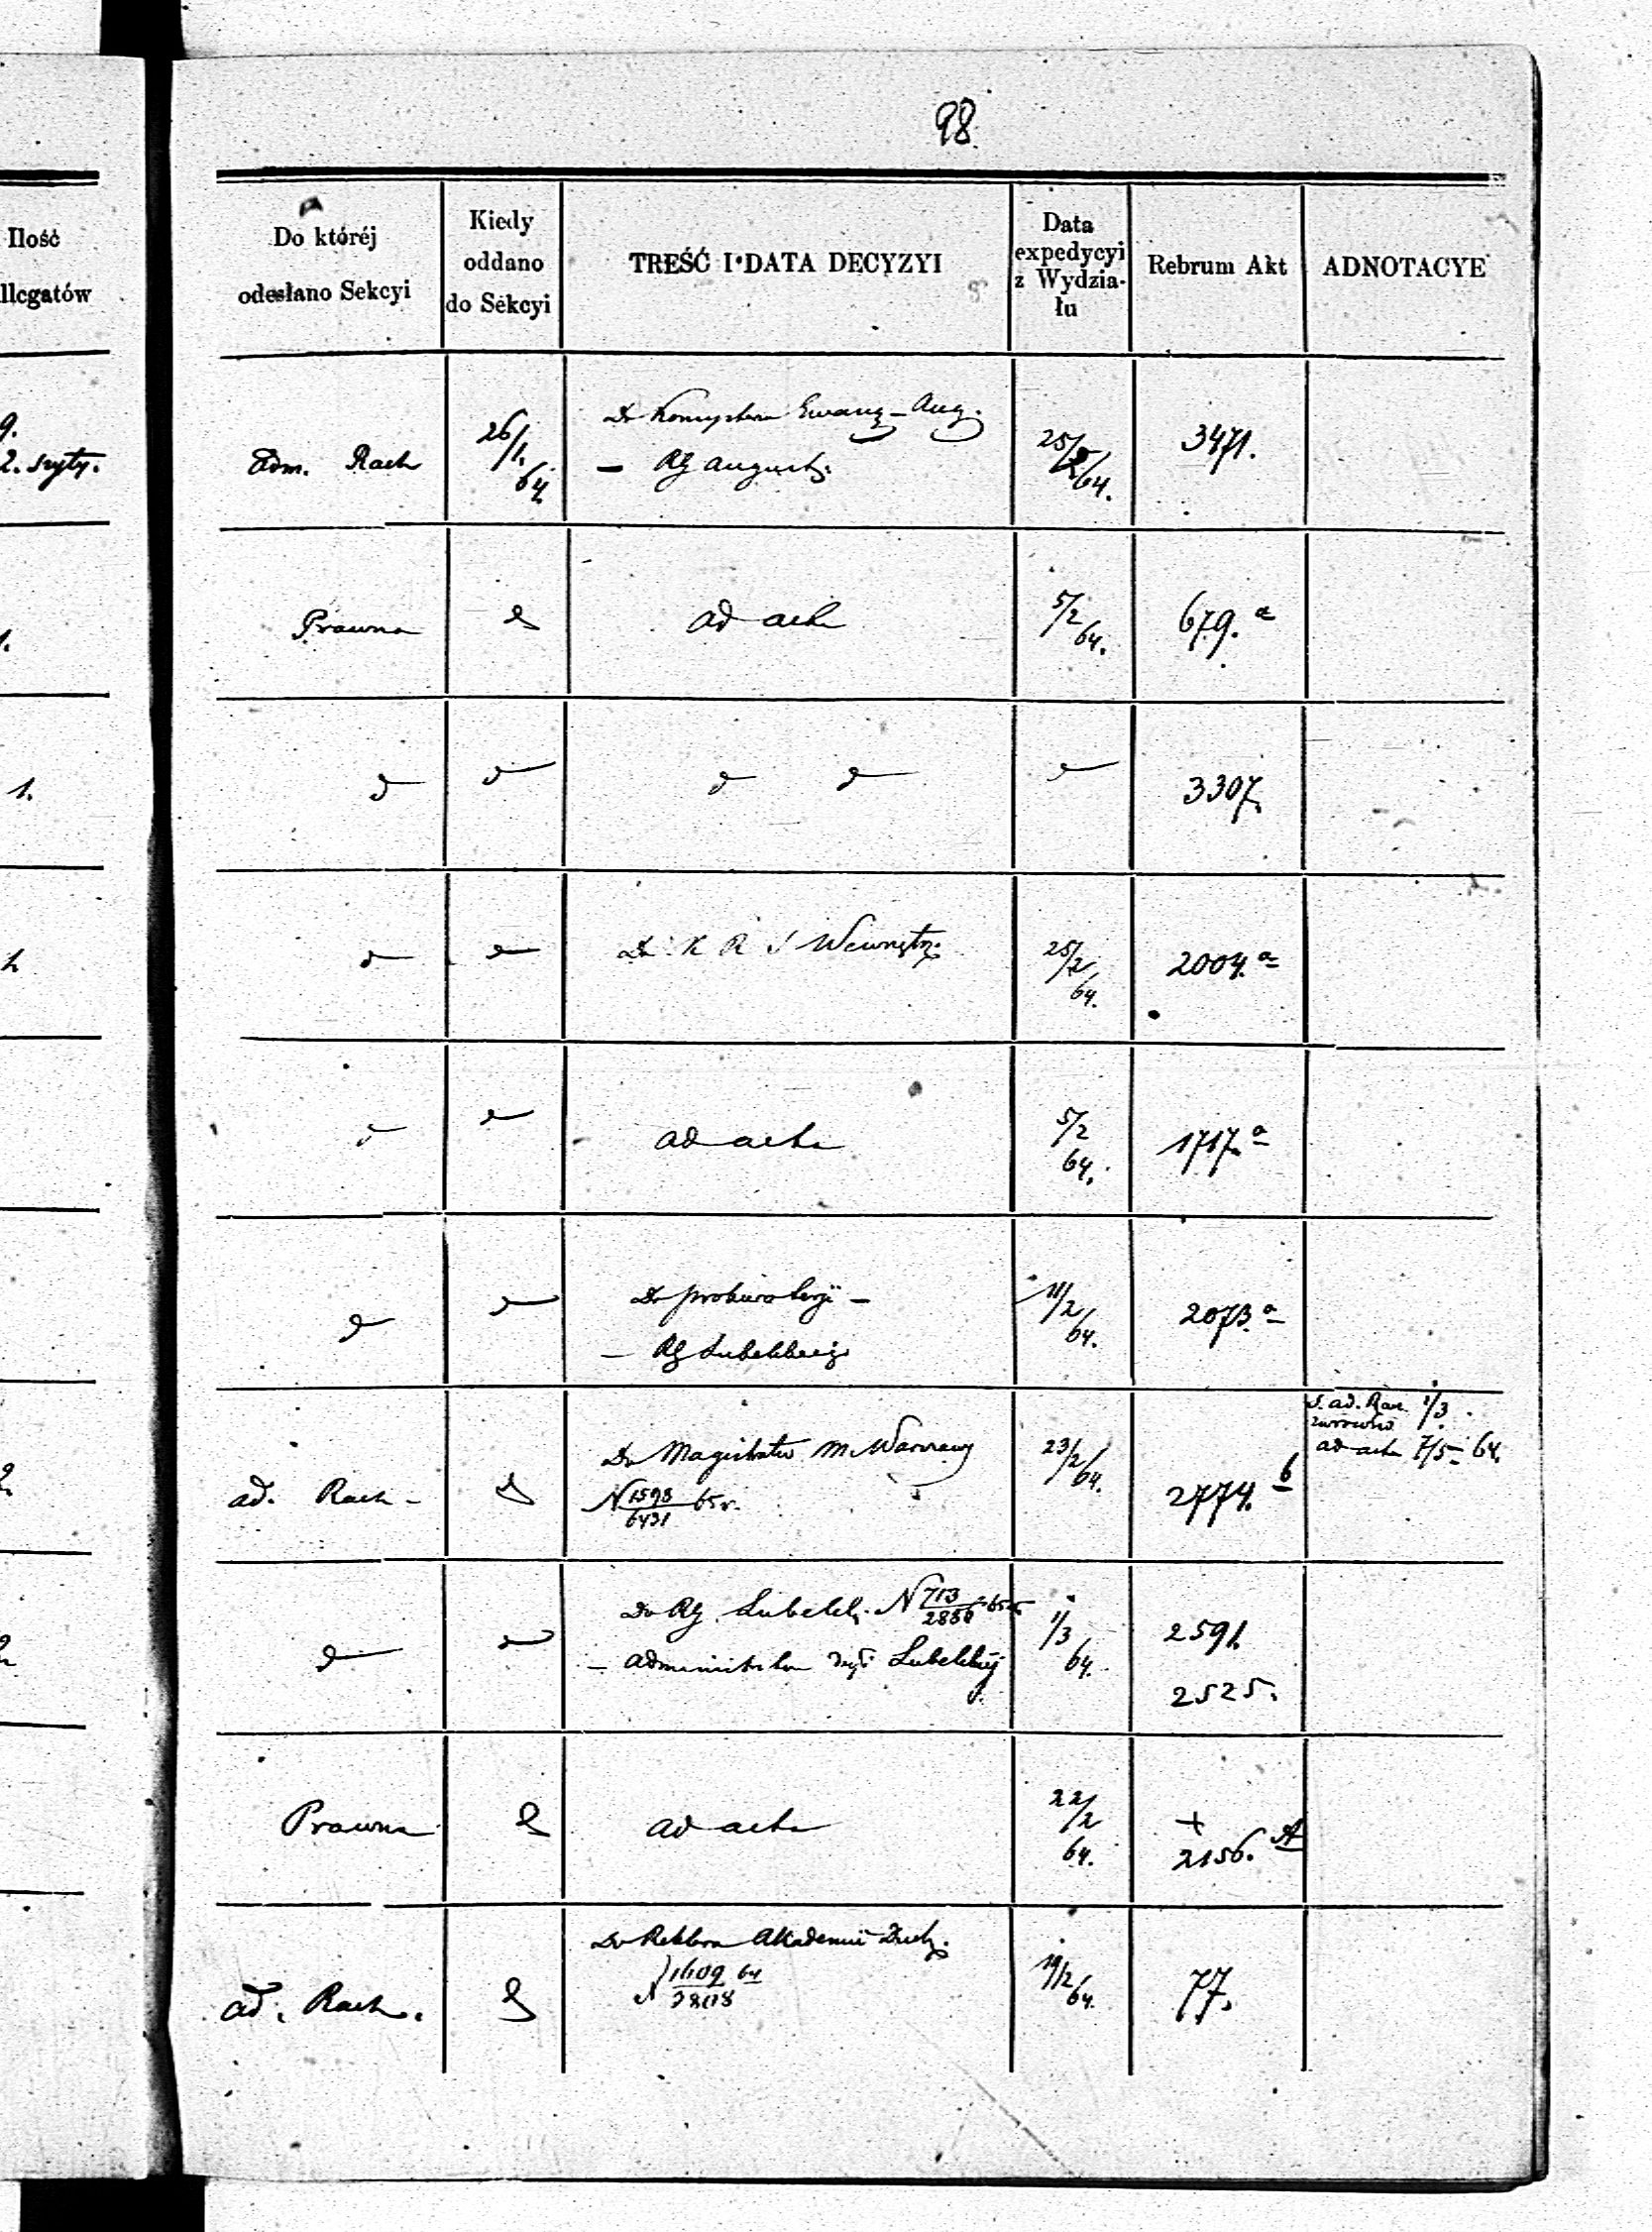 98.
Ilość
llegatów
Do któréj
odesłano Sekcyi
Kiedy
oddano
do Sekcyi
TREŚĆ I DATA DECYZYI
Data
expedycyi
z Wydzia-
łu
Rebrum Akt
ADNOTACYE
9.
2. szyty.
Adm. Rach
26/1. 64
Do Konsystorza Ewang-Aug.
— RG August.
25/2/64.
3471.
1.
Prawna
d
ad acta
5/2 64.
679. a
1.
d
d
d d
d
3307.
1.
d
d
Do K R S Wewnętrz.
25/2 64.
2004. a
d
d
ad acta
5/2 64.
1717. a
d
d
Do prokuratoryi —
— RG Lubelskiej
11/2 64.
2073. a
2.
ad. Rach -
d
Do Magistratu M. Warszawy
N 1598/6431 65r.
23/2/64.
2774. b
S. ad. Rac. 1/3.
zwrócono
ad acta 7/5 - 64.
2
d
d
Do RG. Lubelsk. N 713/2850 65r.
— administratora dyec Lubelskiej
1/3 64.
2591.
2525.
Prawna
d
ad acta
22/2 64.
+
2156. A
ad. Rach.
d
Do Rektora Akademii Duch.
N 1609/2808 64
19/2/64.
77.